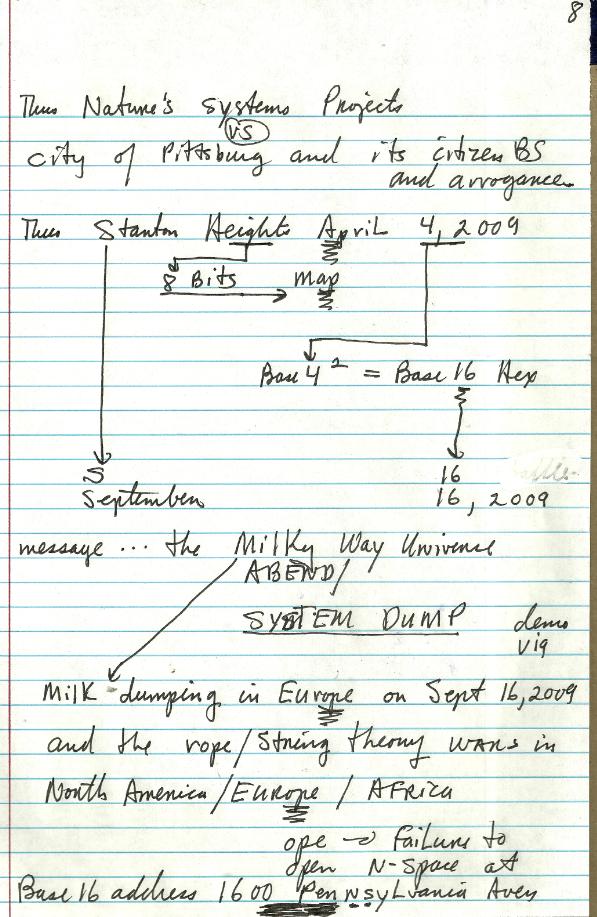 8
Thus Nature's systems Projects
vs
city of Pittsburg and its citizen BS
and arrogance
Thus Stanton Heights April 4, 2009
8 Bits map
Base 4 2 = Base 16 Hex
S 16
September 16, 2009
message ... the Milky Way Universe
ABEND/
SYSTEM DUMP demo
via
Milk dumping in Europe on Sept 16, 2009
and the rope/string theory WARS in
North America/Europe / AFRICA
ope → failure to
open N-Space at
Base 16 address 1600 Pennsylvania Aven